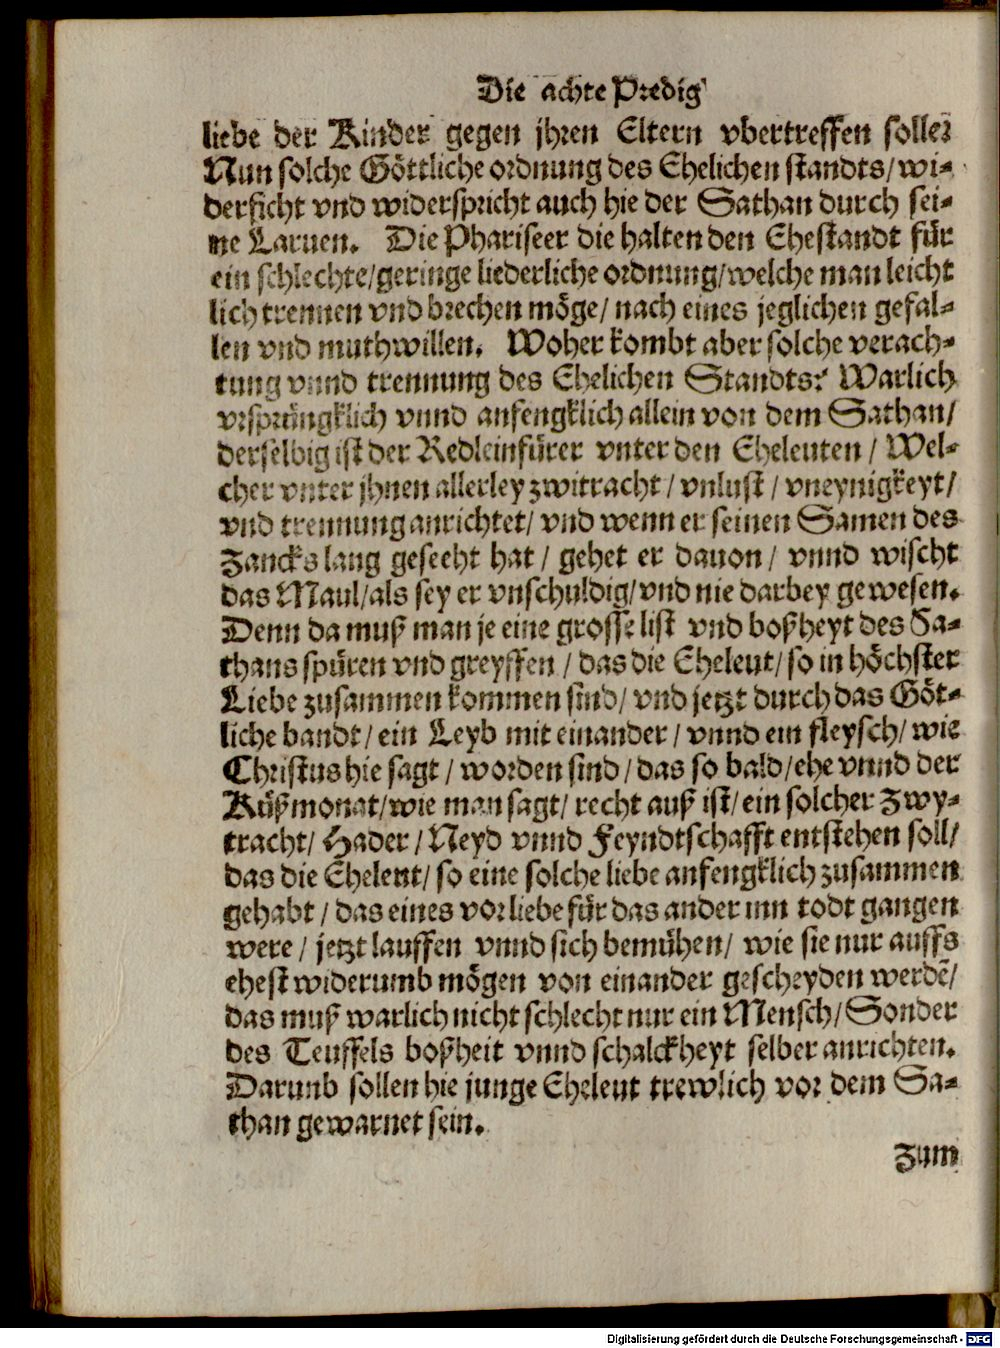 Die achte Predig
liebe der Kinder gegen jhren Eltern vbertreffen solle?
Nun solche Göttliche ordnung des Ehelichen standts/wi-
derficht vnd widerspricht auch hie der Sathan durch sei-
ne Laruen. Die Phariseer die halten den Ehestandt für
ein schlechte/geringe liederliche ordnung/welche man leicht
lich trennen vnd brechen möge/ nach eines jeglichen gefal-
len vnd muthwillen. Woher kombt aber solche verach-
tung vnnd trennung des Ehelichen Standts? Warlich
vrsprüngklich vnnd anfengklich allein von dem Sathan/
derselbig ist der Redleinfürer vnter den Eheleuten / Wel-
cher vnter jhnen allerley zwitracht / vnlust / vneynigkeyt/
vnd trennung anrichtet/ vnd wenn er seinen Samen des
Zancks lang geseeht hat / gehet er dauon / vnnd wischt
das Maul/als sey er vnschuldig/vnd nie darbey gewesen.
Denn da muß man je eine grosse list vnd boßheyt des Sa-
thans spüren vnd greyffen / das die Eheleut/ so in höchster
Liebe zusammen kommen sind/ vnd jetzt durch das Göt-
liche bandt/ ein Leyb mit einander / vnnd ein fleysch/ wie
Christus hie sagt / worden sind / das so bald/ehe vnnd der
Küßmonat/wie man sagt/ recht auß ist/ ein solcher Zwy-
tracht/ Hader / Neyd vnnd Feyndtschafft entstehen soll/
das die Eheleut/ so eine solche liebe anfengklich zusammen
gehabt / das eines vor liebe für das ander inn todt gangen
were / jetzt lauffen vnnd sich bemühen/ wie sie nur auffs
ehest widerumb mögen von einander gescheyden werdẽ/
das muß warlich nicht schlecht nur ein Mensch/ Sonder
des Teuffels boßheit vnnd schalckheyt selber anrichten.
Darunb sollen hie junge Eheleut trewlich vor dem Sa-
than gewarnet sein.
Zum
Digitalisierung gefördert durch die Deutsche Forschungsgemeinschaft - DFG